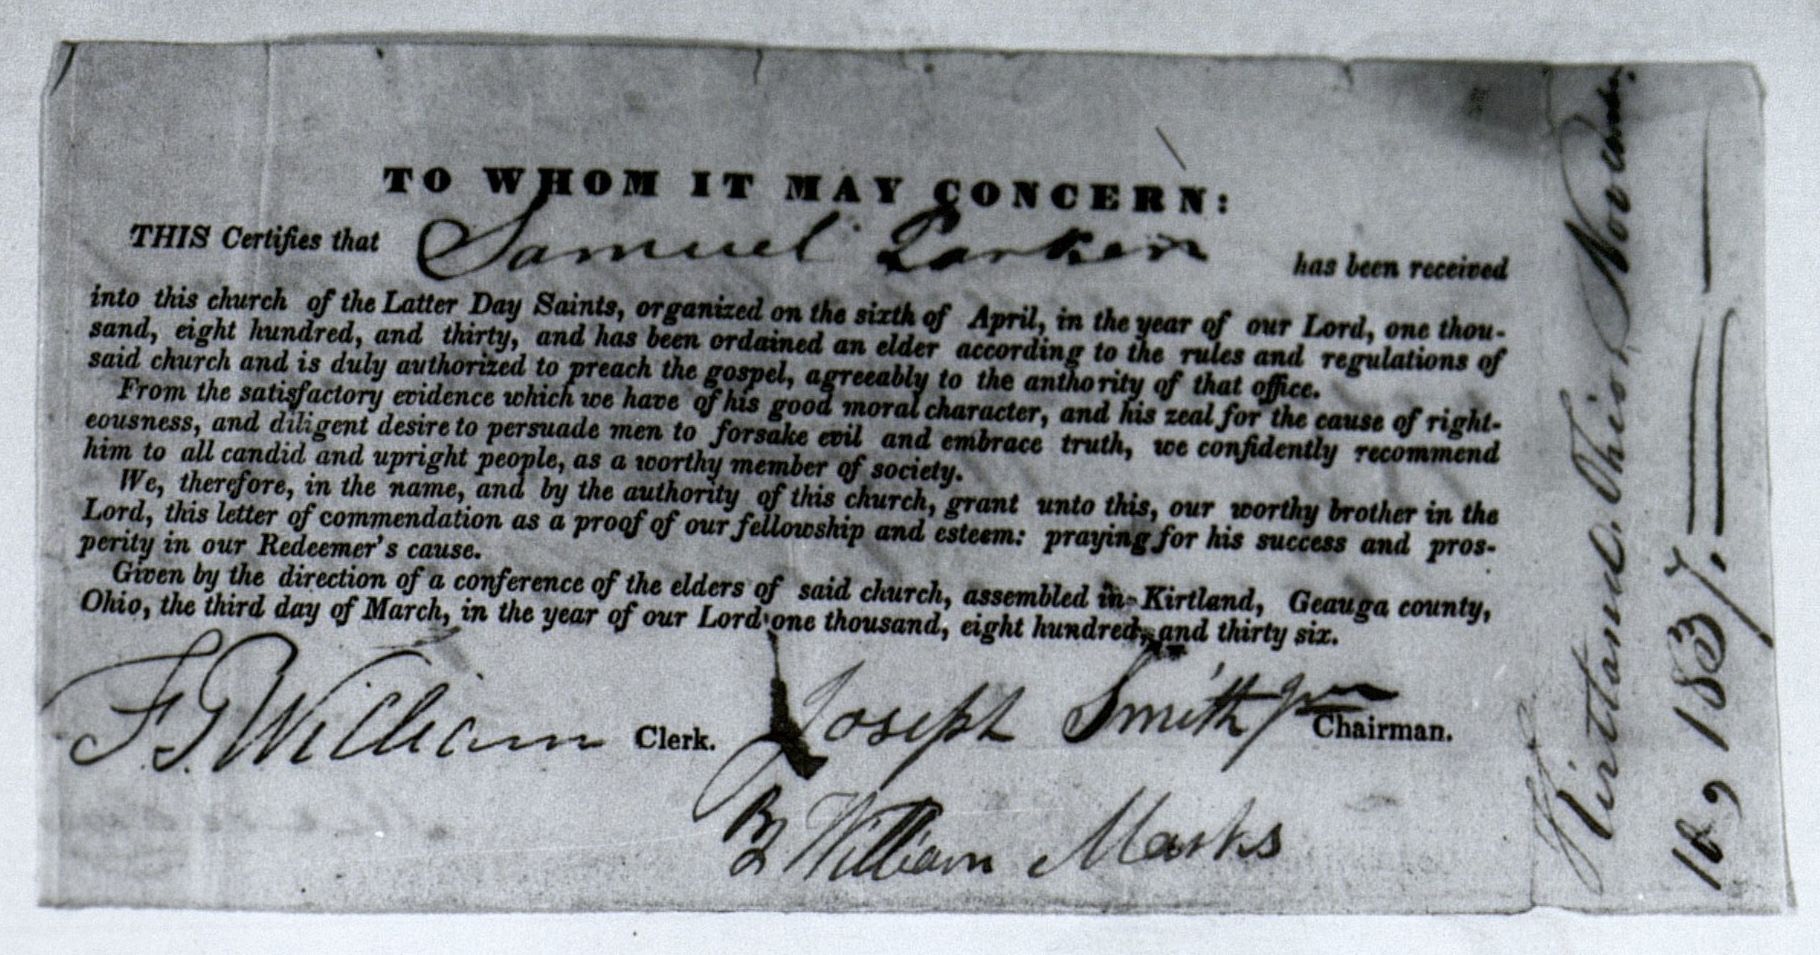 TO WHOM IT MAY CONCERN:
THIS Certifies that Samuel Parker has been received
into this church of the Latter Day Saints, organized on the sixth of April, in the year of our Lord, one thou-
sand, eight hundred, and thirty, and has been ordained an elder according to the rules and regulations of
said church and is duly authorized to preach the gospel, agreeably to the anthority of that office.
From the satisfactory evidence which we have of his good moral character, and his zeal for the cause of right-
eousness, and diligent desire to persuade men to forsake evil and embrace truth, we confidently recommend
him to all candid and upright people, as a worthy member of society.
We, therefore, in the name, and by the authority of this church, grant unto this, our worthy brother in the
Lord, this letter of commendation as a proof of our fellowship and esteem: praying for his success and pros-
perity in our Redeemer's cause.
Given by the direction of a conference of the elders of said church, assembled in Kirtland, Geauga county,
Ohio, the third day of March, in the year of our Lord one thousand, eight hundred, and thirty six.
F. G. William Clerk. Joseph Smith Jun Chairman.
By William Marks
Kirtland. Ohio,
10, 1837.